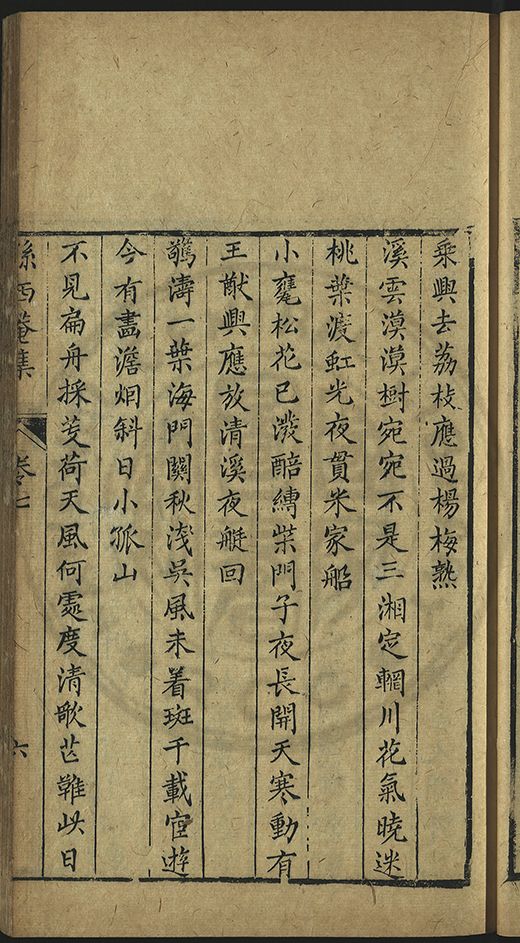 乗興去荔枝應過楊梅熟
溪雲漠漠樹宛宛不是三湘定輞川花氣曉迷
桃葉渡虹光夜貫米家船
小甕松花已潑醅縛柴門子夜長開天寒動有
王猷興應放清溪夜艇回
驚濤一葉海門關秋淺吳風未着斑千載宦遊
今有畫澹烟斜日小孤山
不見扁舟採芰荷天風何處度清歌芒鞵此日
孫西菴集
卷七
六